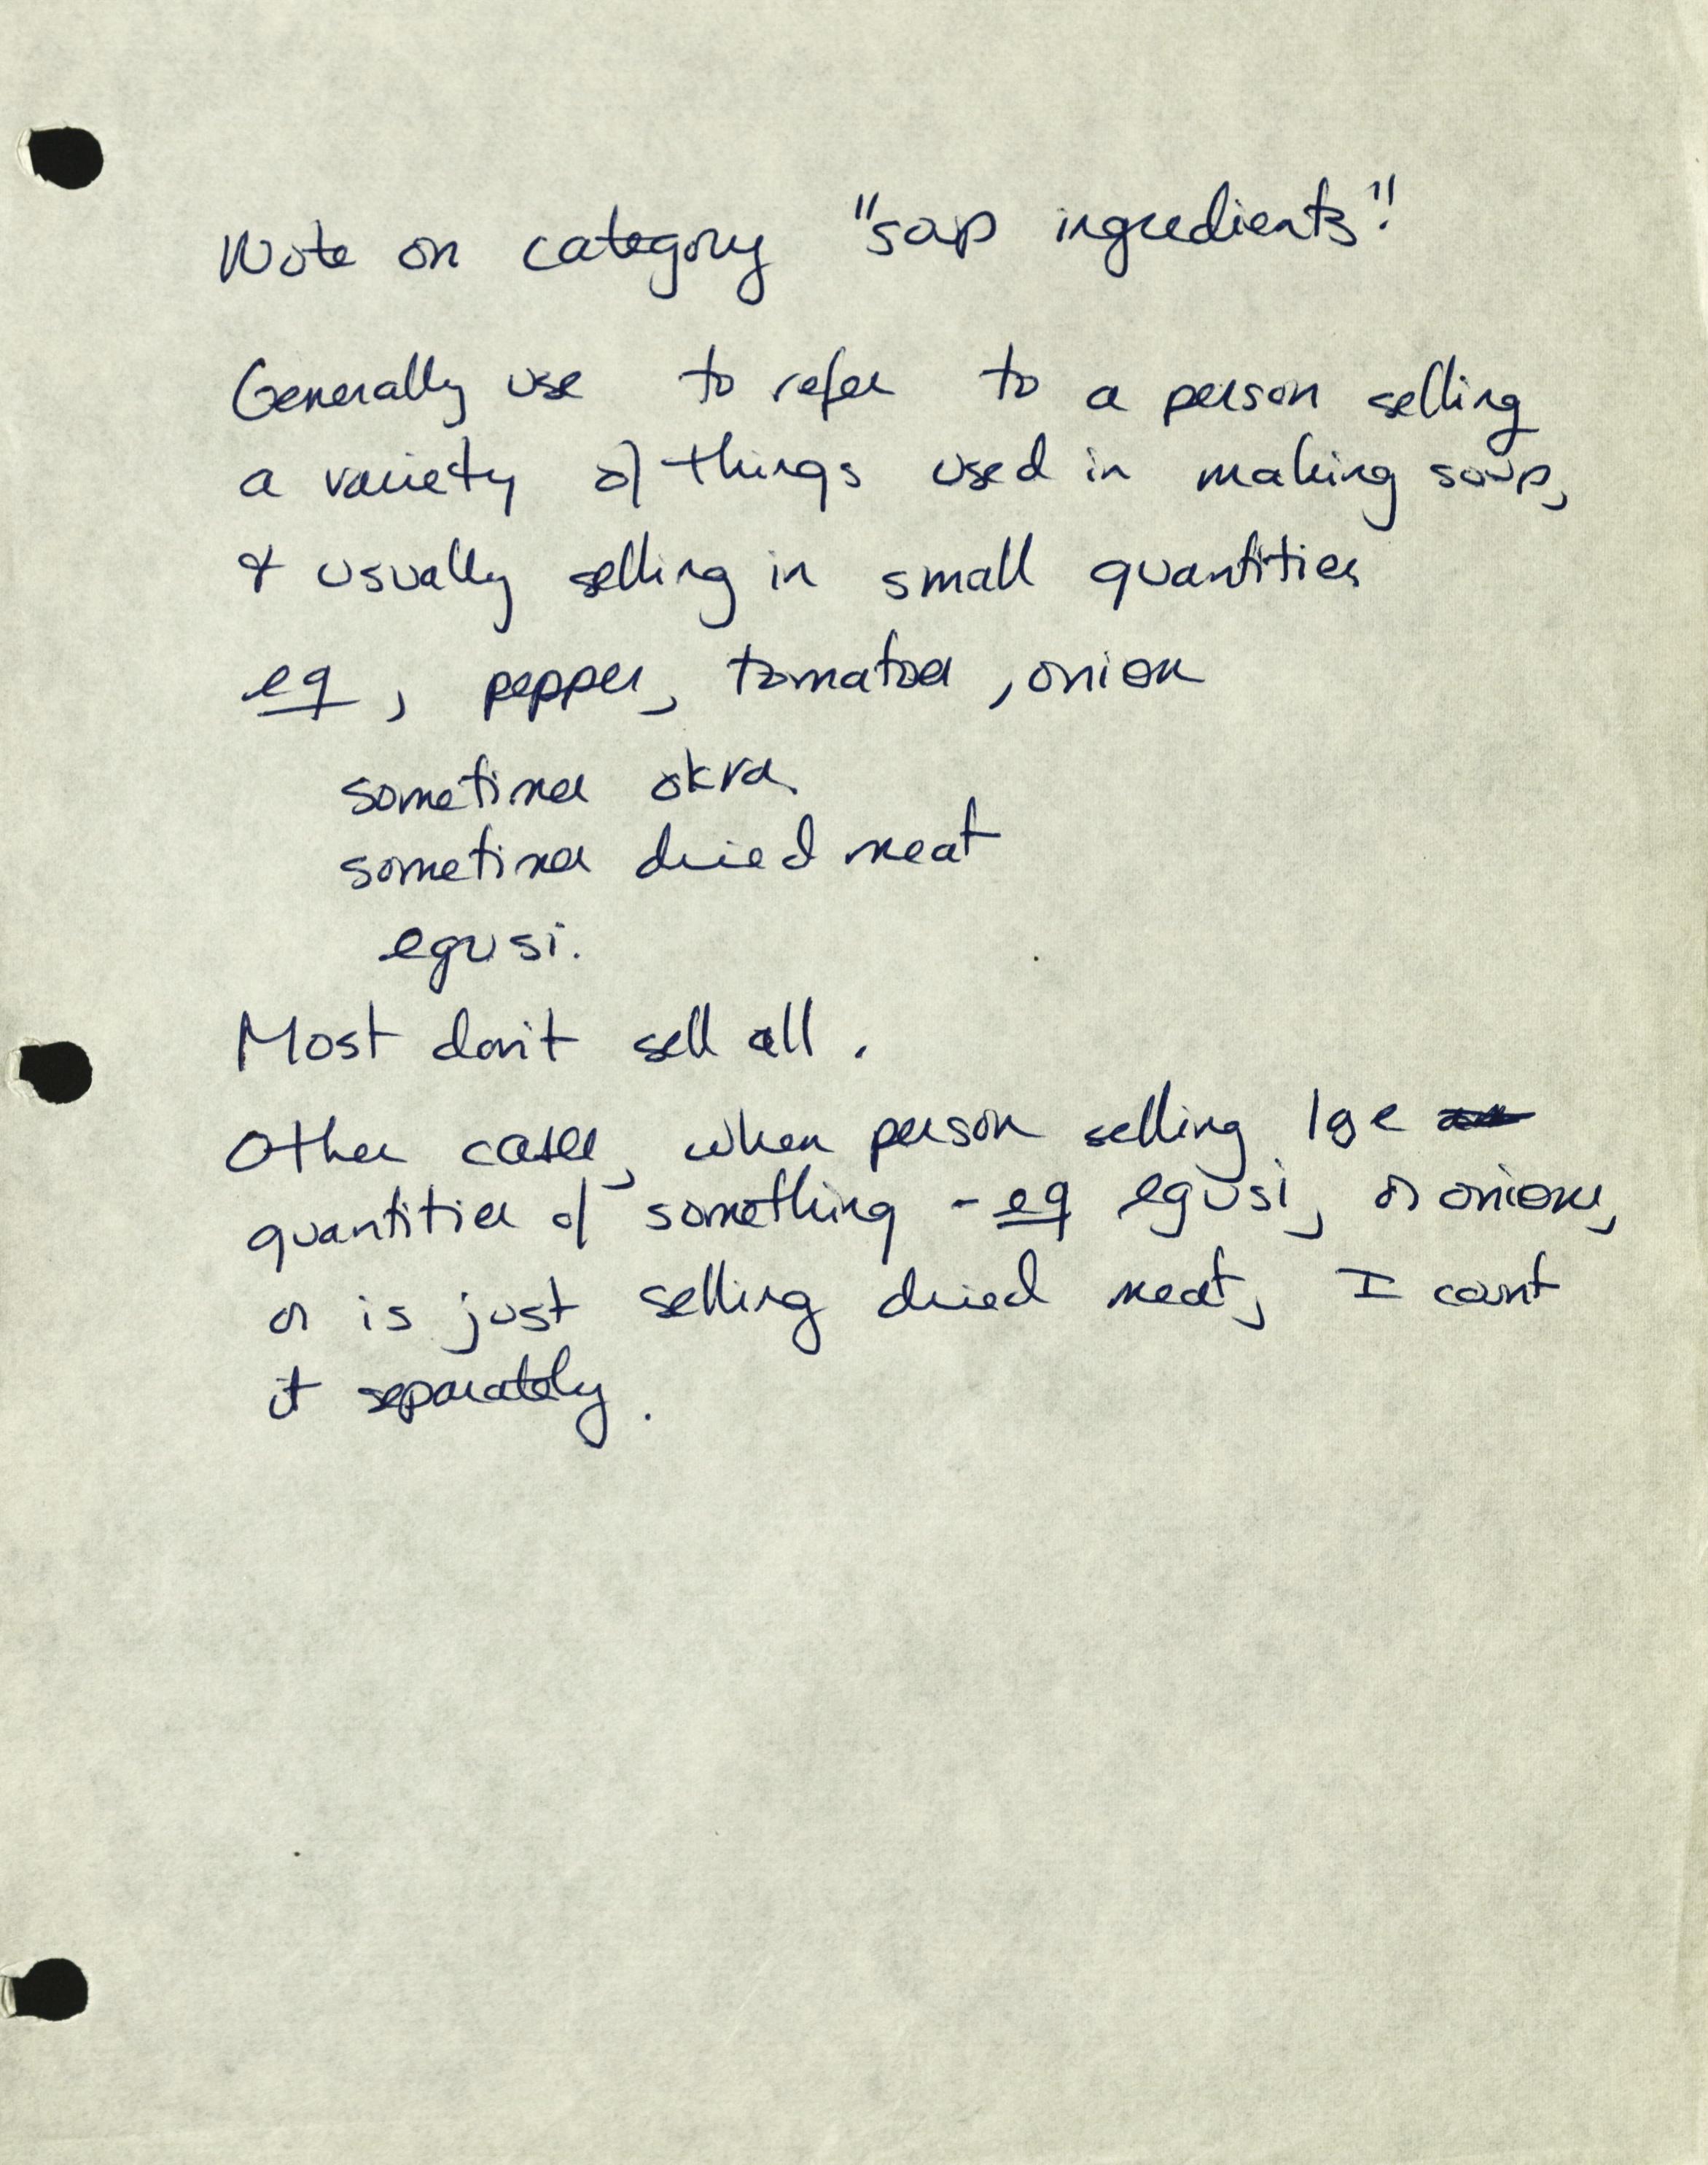 Note on category "soup ingredients":
Generally use to refer to a person selling
a variety of things used in making soup,
& usually selling in small quantities
eg, pepper, tomatoes, onion
sometimes okra
sometimes dried meat
egusi.
Most don't sell all.
Other cases, when person selling lge
quantities of something - eg egusi, or onions,
or is just selling dried meat, I count
it separately.